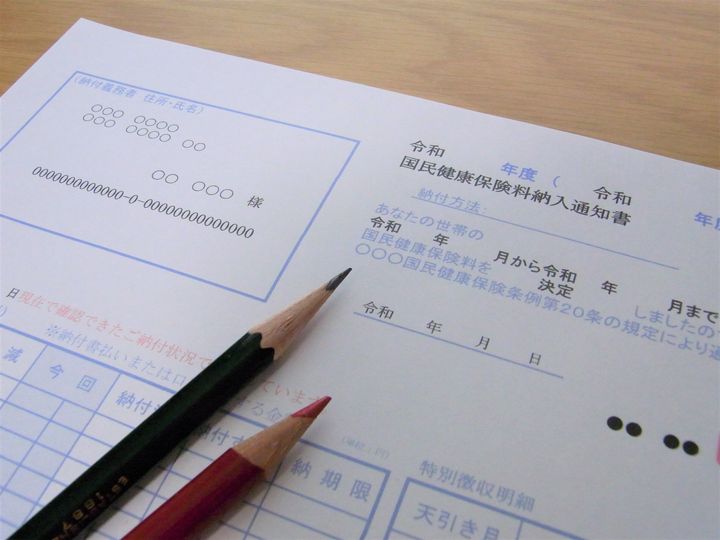 (納付義務者 住所・氏名)
○○○ ○○○○
○○○ ○○○○ ○○
○○ ○○○ 様
0000000000000-0-00000000000000
令和 年度 ( 令和 年度
国民健康保険料納入通知書
納付方法:
あなたの世帯の
令和 年 月から令和 年 月まで
国民健康保険料を 決定 しましたの
○○○国民健康保険条例第20条の規定により通
令和 年 月 日
日現在で確認できたご納付状況で ています
※納付書払いまたは口 する金
減 今回 納付 納付す 納期限
(単位:円)
●● ●●
特別徴収明細
天引き月